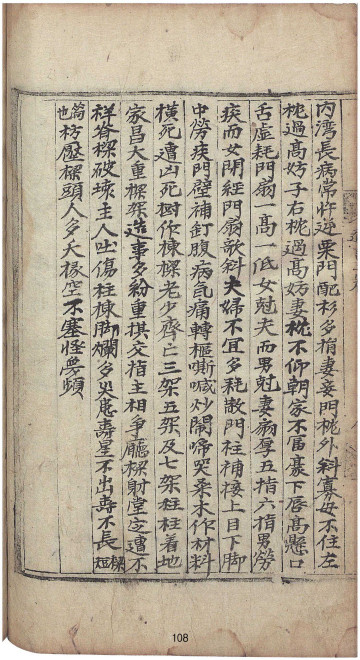 内湾長病常忤逆栗門配杉多損妻妾門桄外斜寡母不住左
桄過高妨子右桄過高妨妻桄不仰朝家不富囊下唇高懸口
舌虛耗門扇一高一低女尅夫而男尅妻扇厚五指六指男劳
疾而女閉經門扇欹斜夫婦不宜多耗散門柱補接上目下脚
中勞疾門壁補釘腹病氣痛轉樞嘶喊炒鬧啼哭桑木作材料
橫死遭凶死樹作棟樑老少齊亡三架五架及七架柱柱着地
家昌大重樑架造事多紛重棋交指主相爭廳樑射堂定遭不
祥脊樑破坡主人吐傷柱棟脚爛多災患壽星不出壽不長樑短
笛也枋壓樑頭人多夭椽空不塞怪夢頻
108